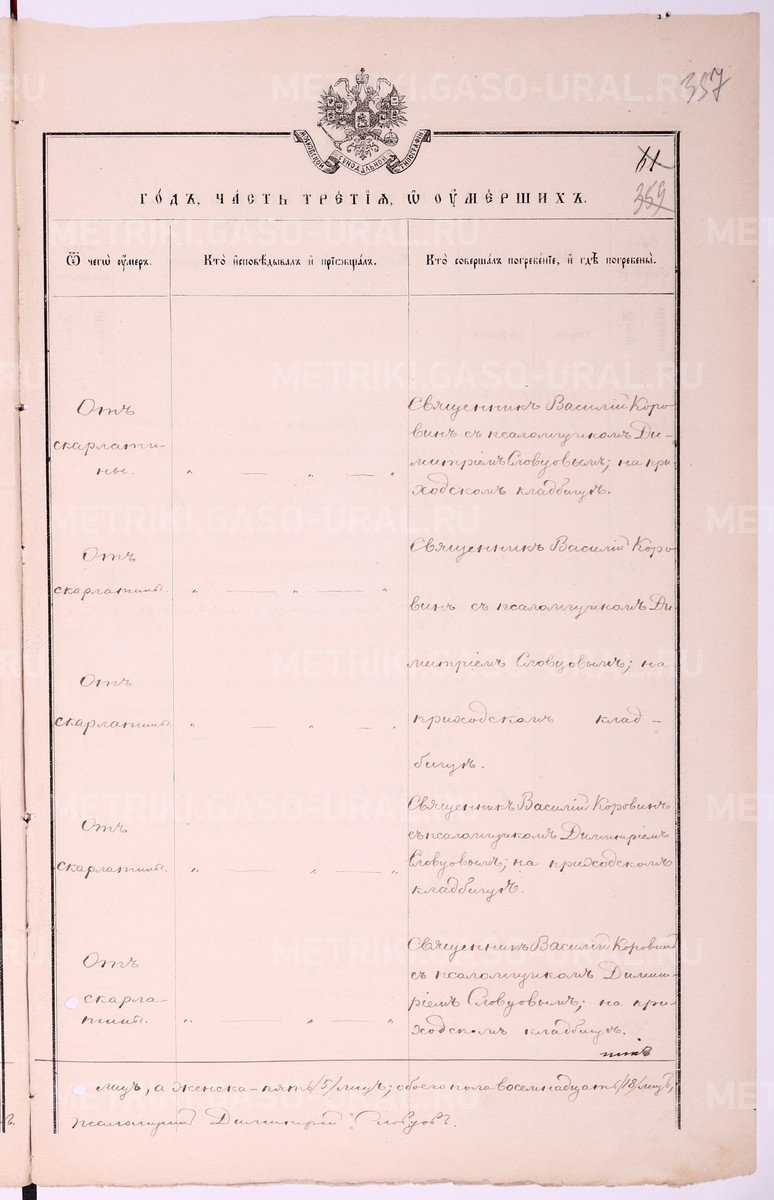 METRIKI.GASO-URAL.RU
357
МОСКОВСКОЙ СУНОДАЛЬНОЙ ТИПОГРАФІИ
11
359
ГО́ДЪ, ЧА́СТЬ ТРЕ́ТІѦ, Ѡ ОУМЕ́РШИХЪ.
Ѿ чегѡ̀ оу҆́меръ.
Кто̀ и҆сповѣ́дывалъ и҆ прїѡбща́лъ.
Кто̀ соверша́лъ погребе́нїе, и҆ гдѣ̀ погребены̀.
Отъ
скарлати-
ны.
„ — „ — „
Священникъ Василій Коро-
винъ съ псаломщикомъ Ди-
митріемъ Словцовымъ; на при-
ходскомъ кладбищѣ.
Отъ
скарлатины
„ — „ — „
Священникъ Василій Коро
винъ съ псаломщикомъ Ди
митріемъ Словцовымъ; на
приходскомъ клад-
бищѣ.
Отъ
скарлатины.
„ — „ — „
Отъ
скарлатины.
„ — „ — „
Священникъ Василій Коровинъ
съ псаломщикомъ Димитріемъ
Словцовымъ; на приходскомъ
кладбищѣ.
Отъ
скарла-
тины.
„ — „ — „
Священникъ Василій Коровинъ
съ псаломщикомъ Димит-
ріемъ Словцовымъ; на при-
ходскомъ кладбищѣ.
лицъ, а женска - пять /5/ лицъ; обоего пола восемнадцать /18/ лицъ,
псаломщикъ Димитрій Словцовъ.